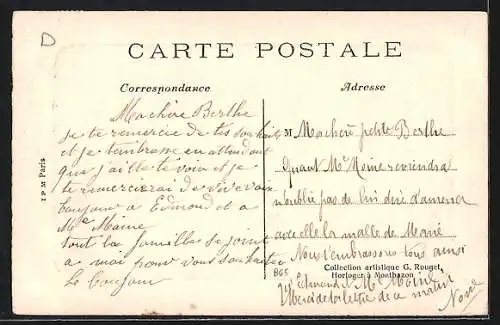 D
CARTE POSTALE
Correspondance
Adresse
Ma chère Berthe
je te remercie de tes souhaits
et je t'embrasse en attendant
que j'aille te voir et je
te remercierai de vive voix
bonjour à Edmond et a
Me Moine
tout la famille se joint
a moi pour vous souhaiter
le bonjour
M Ma chère petite Berthe
quant Me Moine reviendra
n'oublie pas de lui dire d'amener
avec elle la malle de Marie
Nous t'embrassons tous ainsi
865
Collection artistique G. Rouget,
Horloger à Montbazon
Edmond & Me Moine
Merci de ta lettre de ce matin
I P M Paris